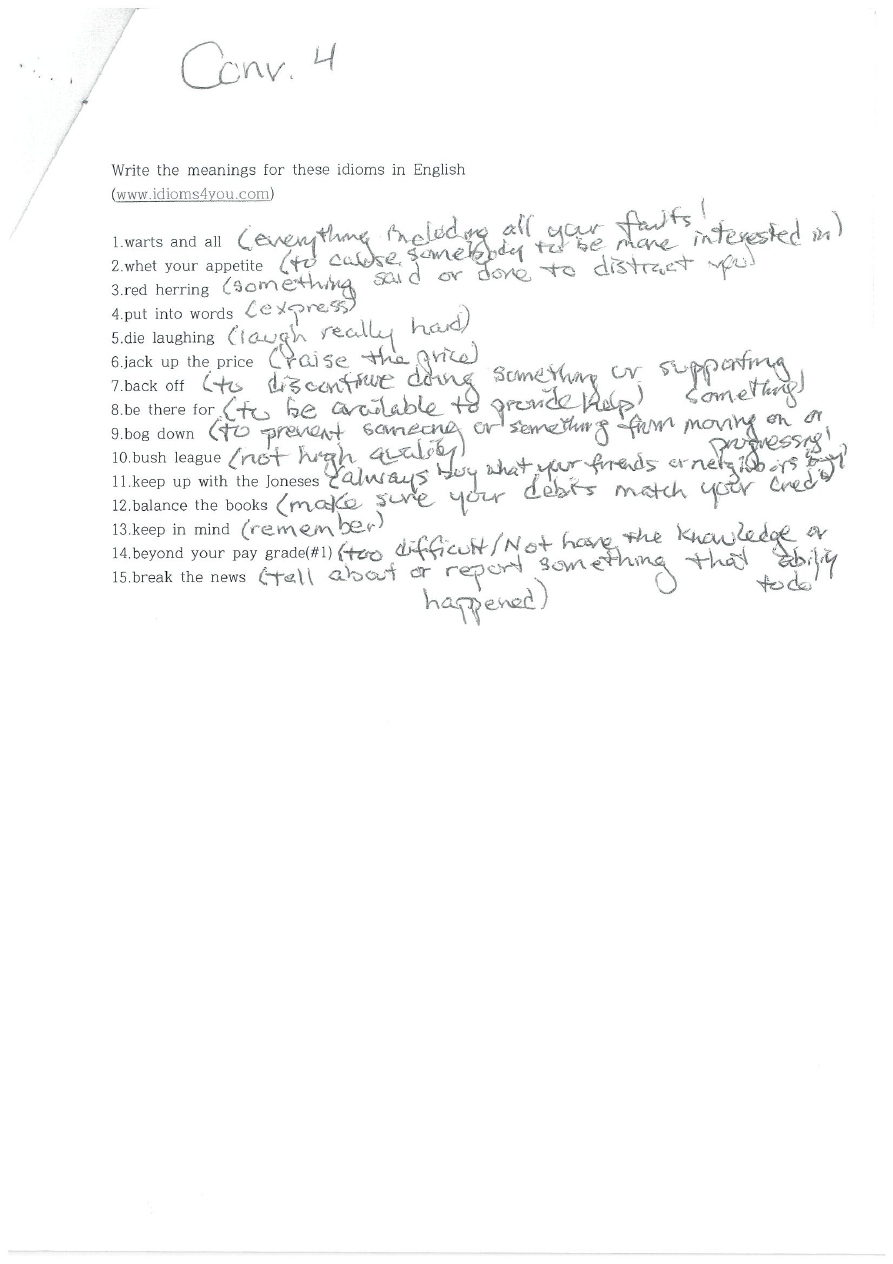 Conv. 4
Write the meanings for these idioms in English
(www.idioms4you.com)
1.warts and all (everything including all your faults)
2.whet your appetite (to cause somebody to be more interested in)
3.red herring (something said or done to distract you)
4.put into words (express)
5.die laughing (laugh really hard)
6.jack up the price (raise the price)
7.back off (to discontinue doing something or supporting
something)
8.be there for (to be available to provide help)
9.bog down (to prevent someone or something from moving on or
progressing)
10.bush league (not high quality)
11.keep up with the Joneses (always buy what your friends or neighbors buy)
12.balance the books (make sure your debits match your credit)
13.keep in mind (remember)
14.beyond your pay grade(#1) (too difficult/Not have the knowledge or
ability
to do)
15.break the news (tell about or report something that
happened)